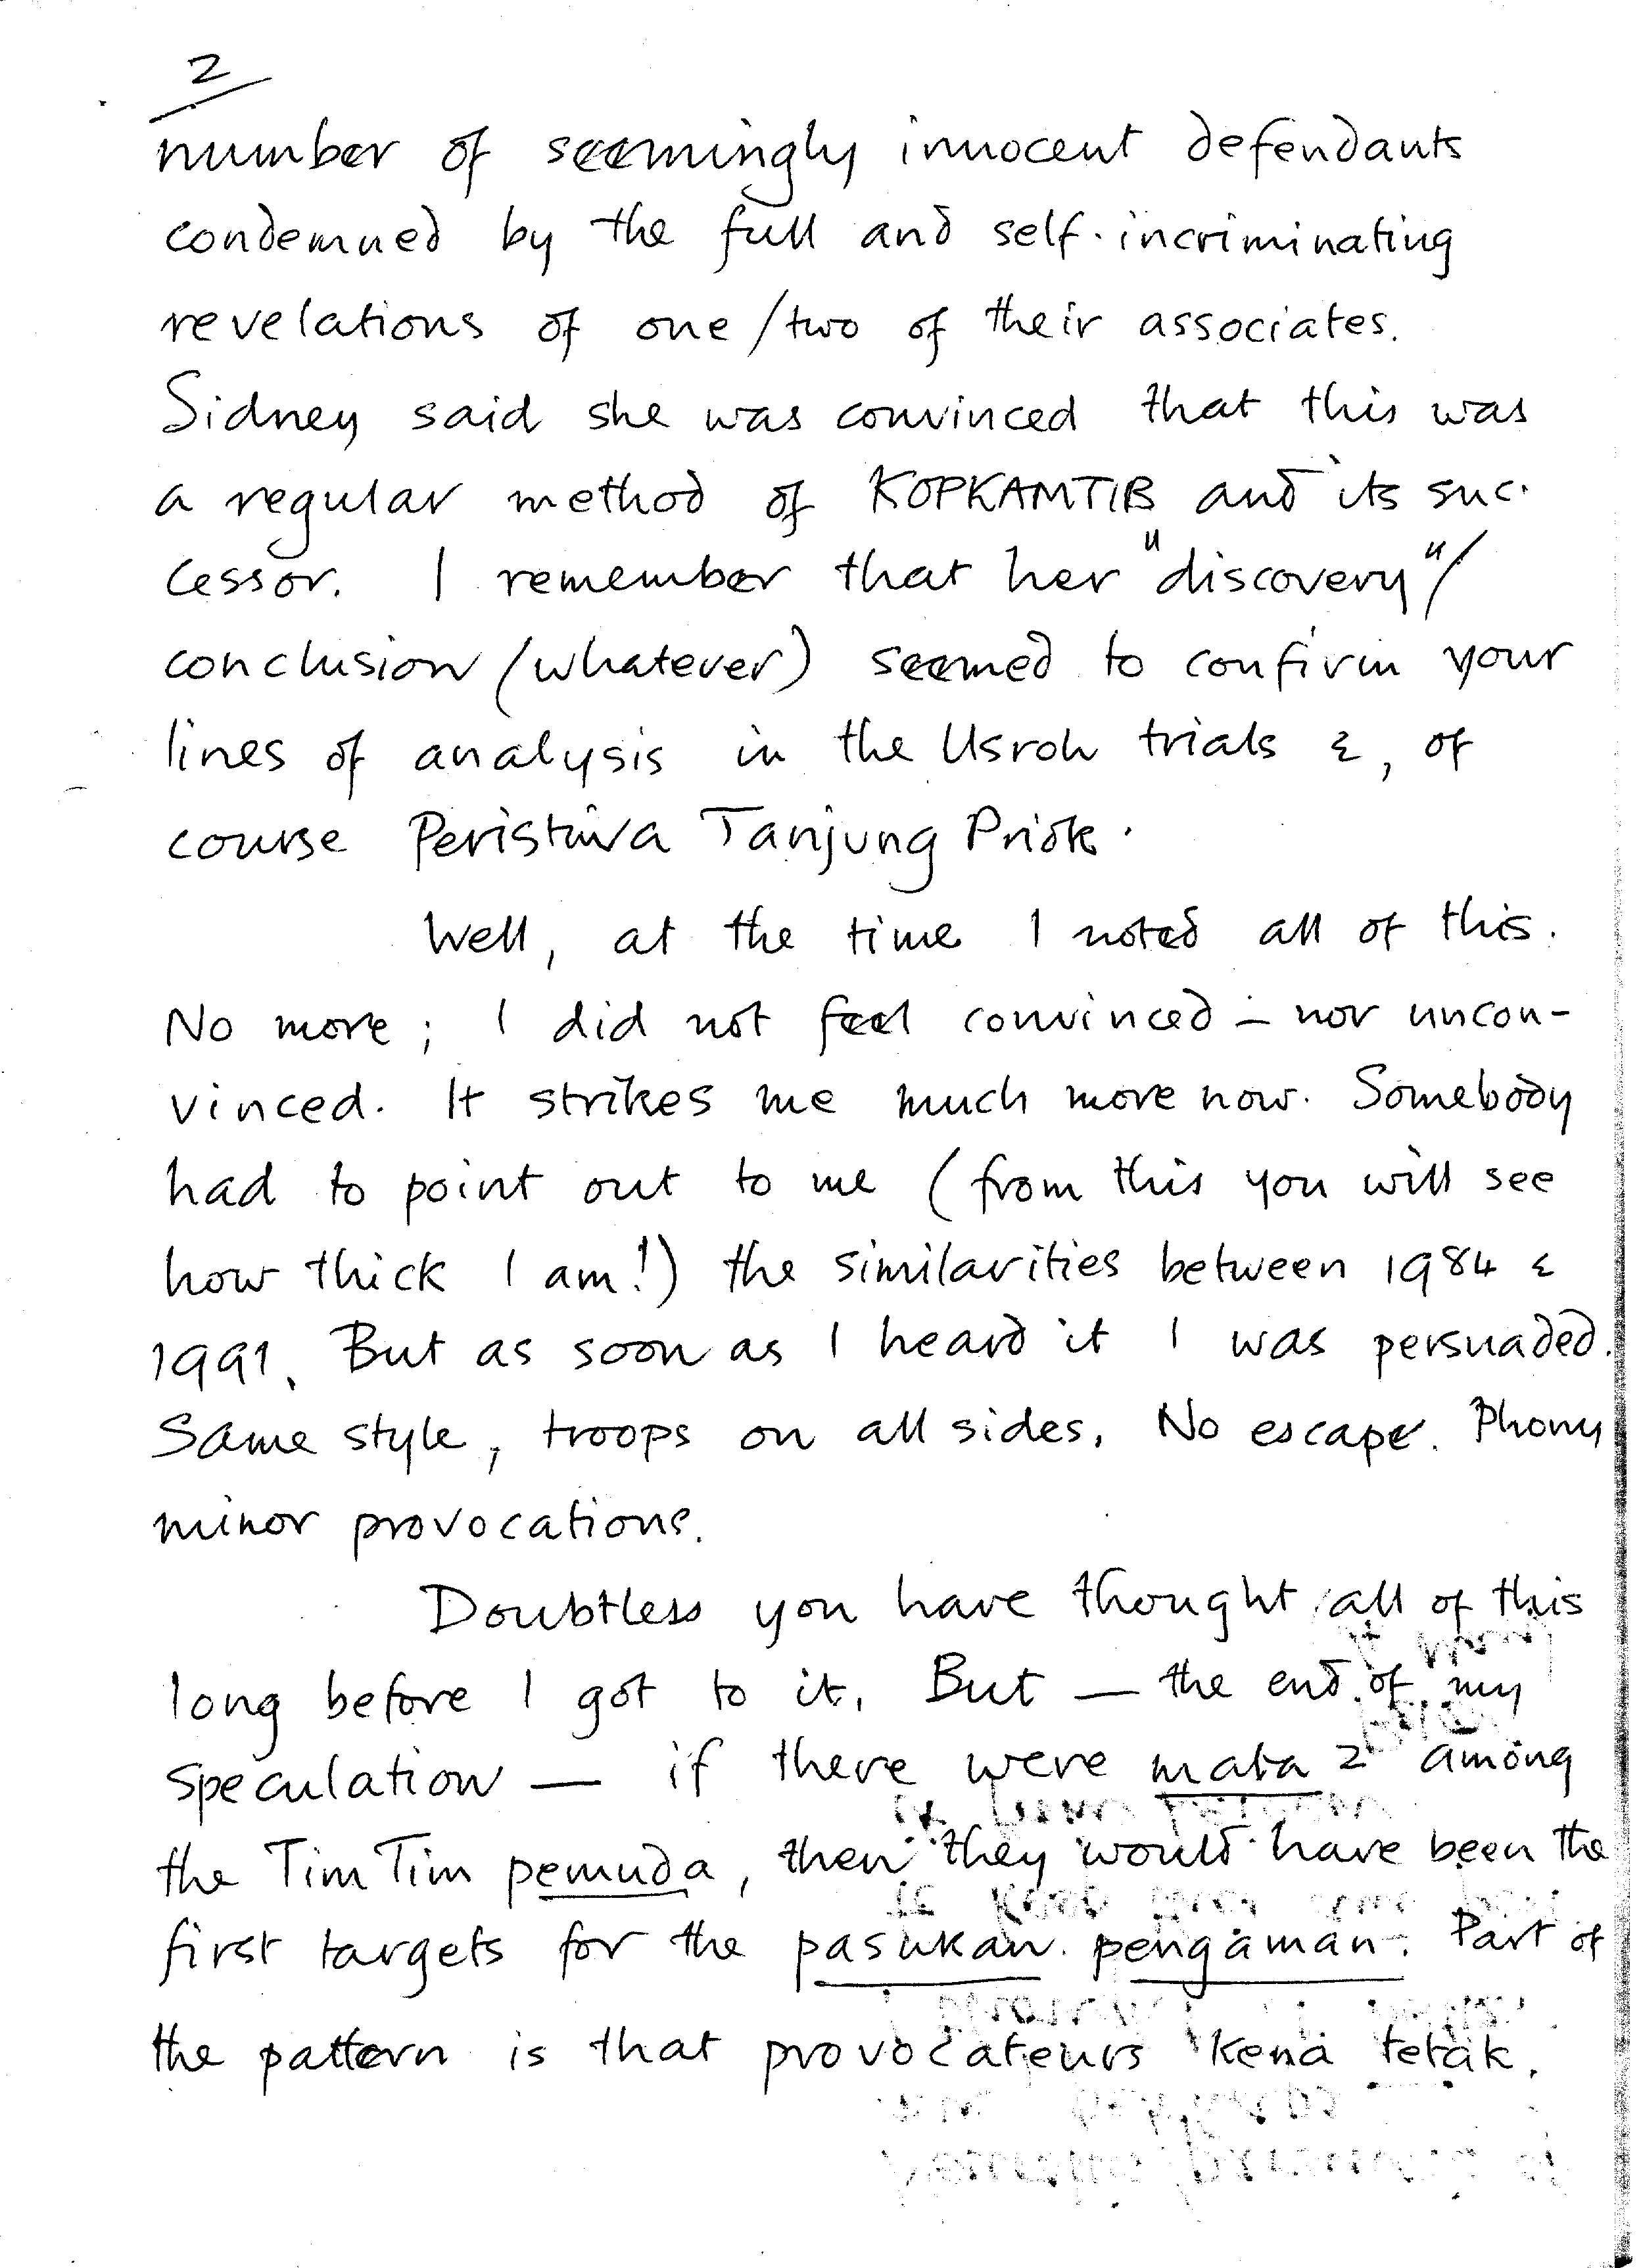 2
number of seemingly innocent defendants
condemned by the full and self-incriminating
revelations of one/two of their associates.
Sidney said she was convinced that this was
a regular method of KOPKAMTIB and its suc-
cessor. I remember that her "discovery"/
conclusion (whatever) seemed to confirm your
lines of analysis in the Usroh trials &, of
course Peristiwa Tanjung Priok.
Well, at the time I noted all of this.
No more; I did not feel convinced – nor uncon-
vinced. It strikes me much more now. Somebody
had to point out to me (from this you will see
how thick I am!) the similarities between 1984 &
1991. But as soon as I heard it I was persuaded.
Same style, troops on all sides. No escape. Phony
minor provocations.
Doubtless you have thought all of this
long before I got to it. But — the end of my
speculation — if there were mata 2 among
the TimTim pemuda, then they would have been the
first targets for the pasukan pengaman. Part of
the pattern is that provocateurs kena tetak.